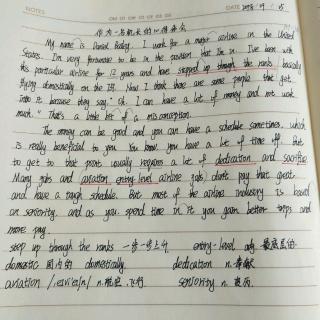 NOTES
DATE
作为一名机长的心得体会
My name is Daniel Bailey. I work for a major airline in the United
States. I'm very fortunate to be in the position that I'm in. I've been with
this particular airline for 12 years and have stepped up through the ranks basically
flying domestically on the 
Now I think there are some people that get
into it because they say "Oh, I can have a lot of money and not work
much." That's a little bit of a misconception.
The money can be good and you can have a schedule sometimes, which
is really beneficial to you. You know, you have a lot of time off. But
to get to that point usually requires a lot of dedication and sacrifice
Many jobs and aviation entry-level airline jobs don't pay that great
and have a rough schedule. But most of the airline industry is based
on seniority, and as you spend time in it you gain better trips and
more pay.
step up through the ranks 一步一步上升 entry-level adj. 最底层的
domestic 国内的 domestically dedication n. 奉献
aviation n. 航空, 飞行 seniority n. 资历